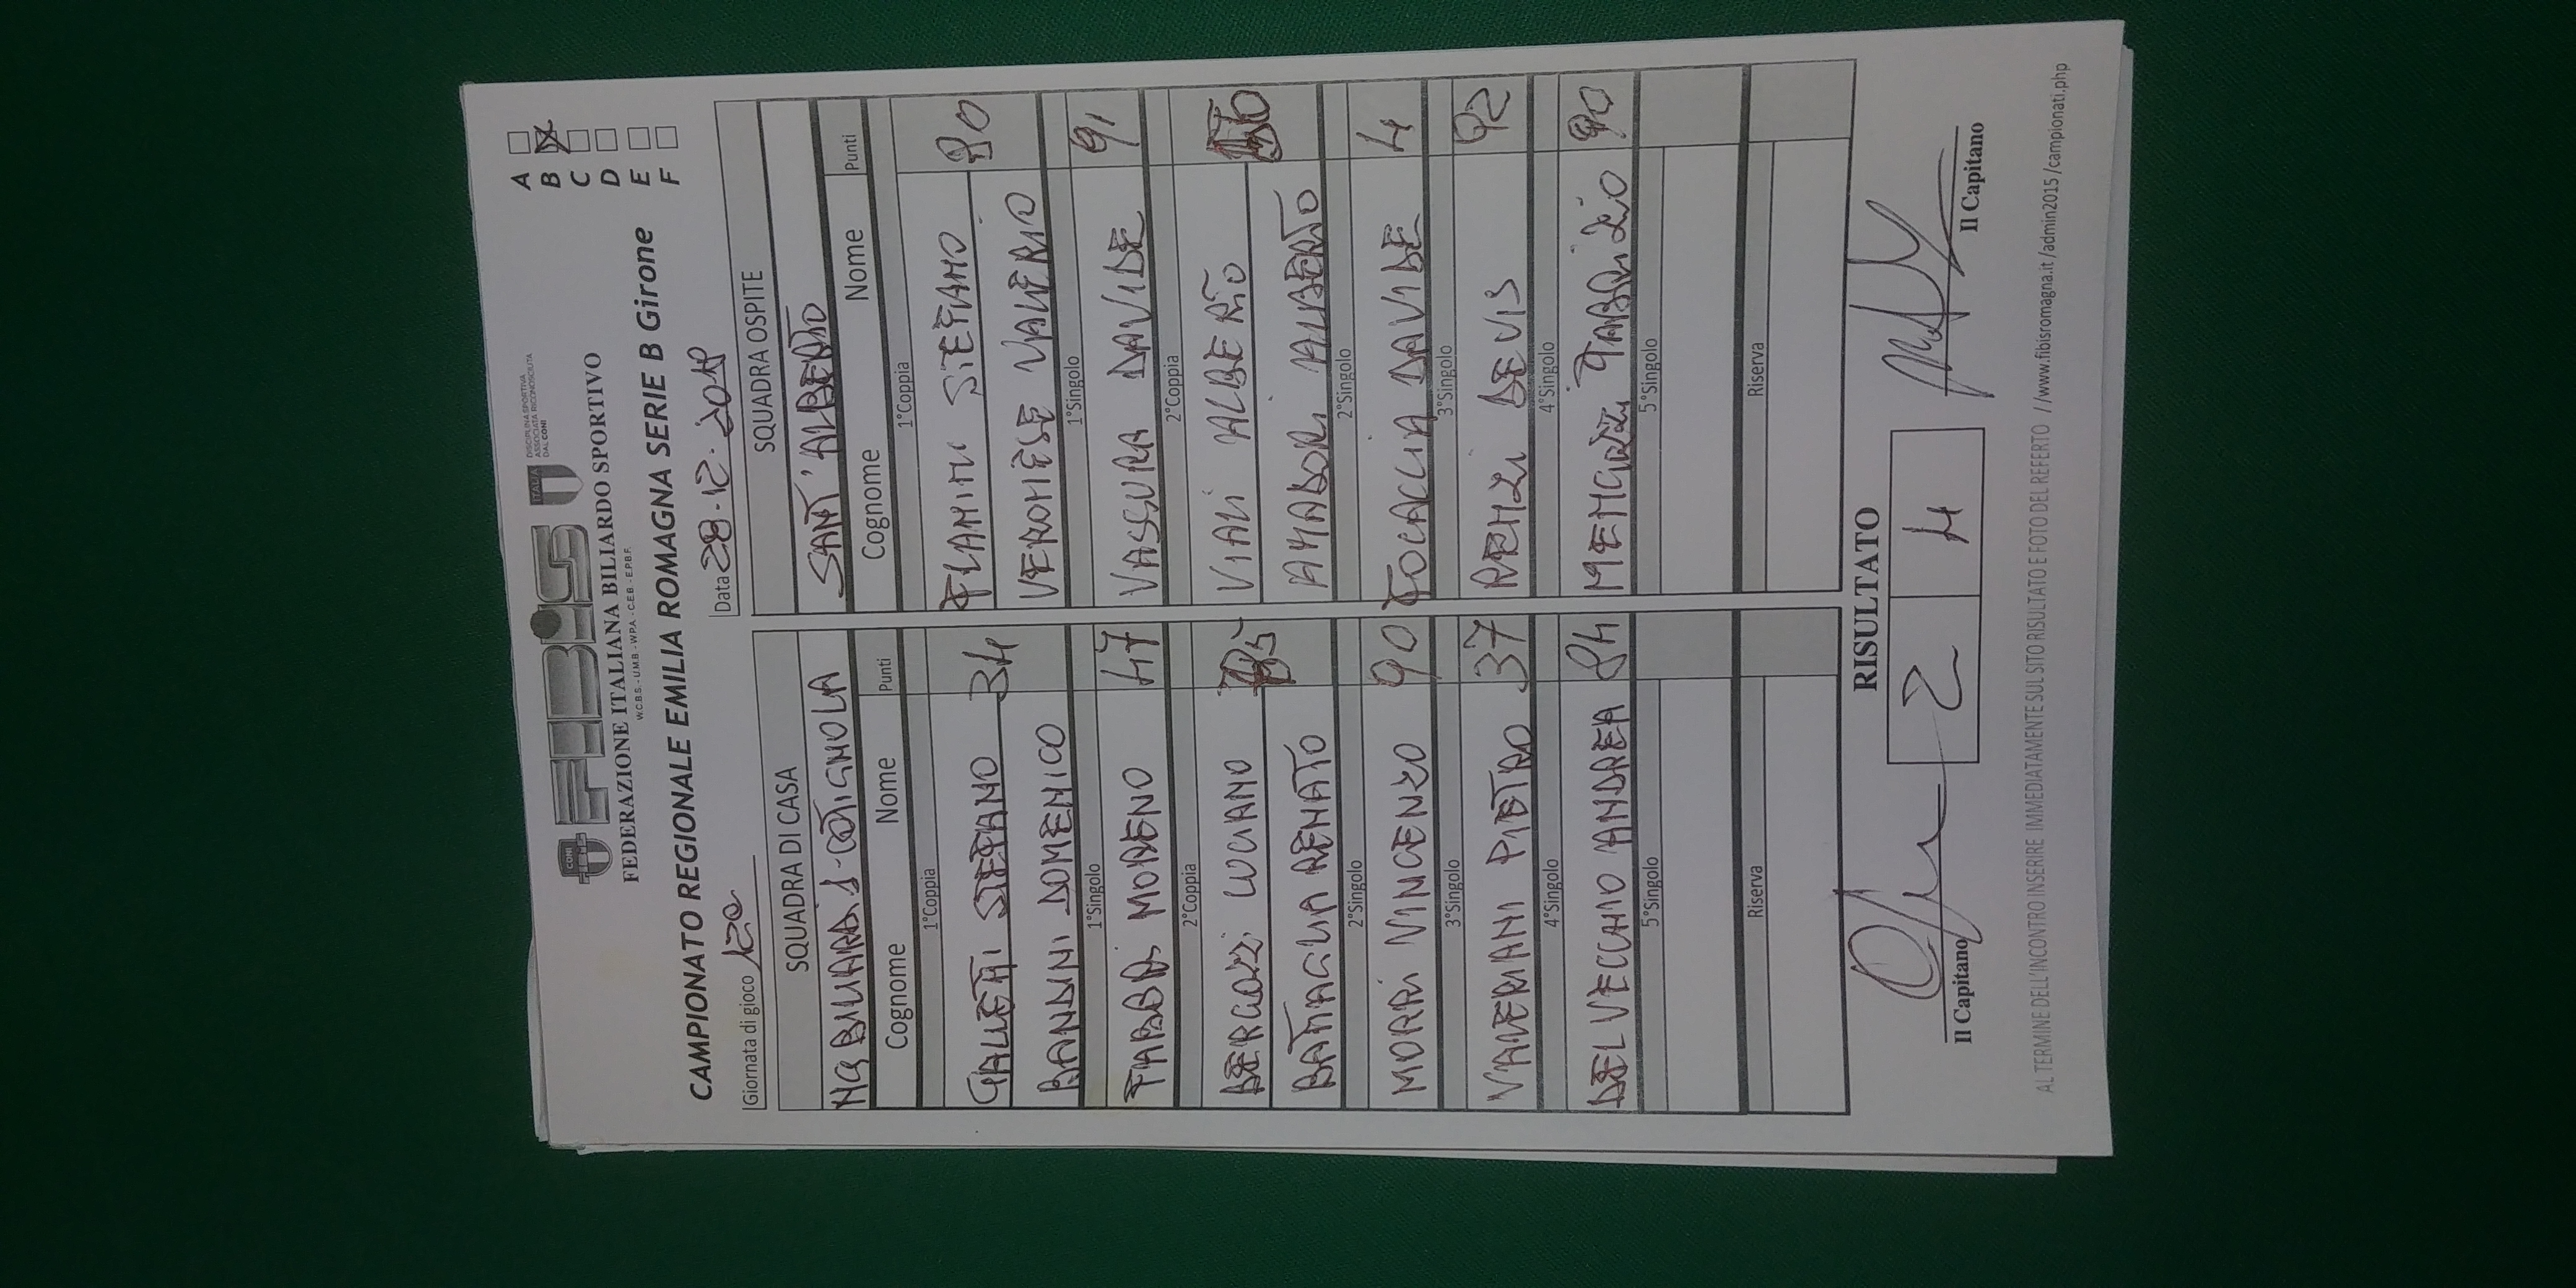 CONI
FIBiS
ITALIA
DISCIPLINA SPORTIVA
ASSOCIATA RICONOSCIUTA
DAL CONI
FEDERAZIONE ITALIANA BILIARDO SPORTIVO
W.C.B.S. - U.M.B. - W.P.A. - C.E.B. - E.P.B.F.
CAMPIONATO REGIONALE EMILIA ROMAGNA SERIE B Girone
A
B X
C
D
E
F
Giornata di gioco
Data 28.12.2018
SQUADRA DI CASA SQUADRA OSPITE
COTIGNOLA SANT'ALBERTO
Cognome Nome Punti Cognome Nome Punti
1°Coppia 1°Coppia
GALLETTI STEFANO 34 FLAMINI STEFANO 80
BANDINI DOMENICO VERONESE VALERIO
1°Singolo 1°Singolo
FABBRI MORENO 47 VASSURA DAVIDE 91
2°Coppia 2°Coppia
BERGOZZI LUCIANO VIALI ALBERTO
BATTAGLIA RENATO AMADORI ALBERTO
2°Singolo 2°Singolo
MORRI VINCENZO 90 FOCACCIA DAVIDE 4
3°Singolo 3°Singolo
VALERIANI PIETRO 37 RENZI DEVIS 92
4°Singolo 4°Singolo
DEL VECCHIO ANDREA 84 MENGOZZI FABRIZIO 90
5°Singolo 5°Singolo
Riserva Riserva
RISULTATO
2 4
Il Capitano Il Capitano
AL TERMINE DELL'INCONTRO INSERIRE IMMEDIATAMENTE SUL SITO RISULTATO E FOTO DEL REFERTO //www.fibisromagna.it/admin2015/campionati.php